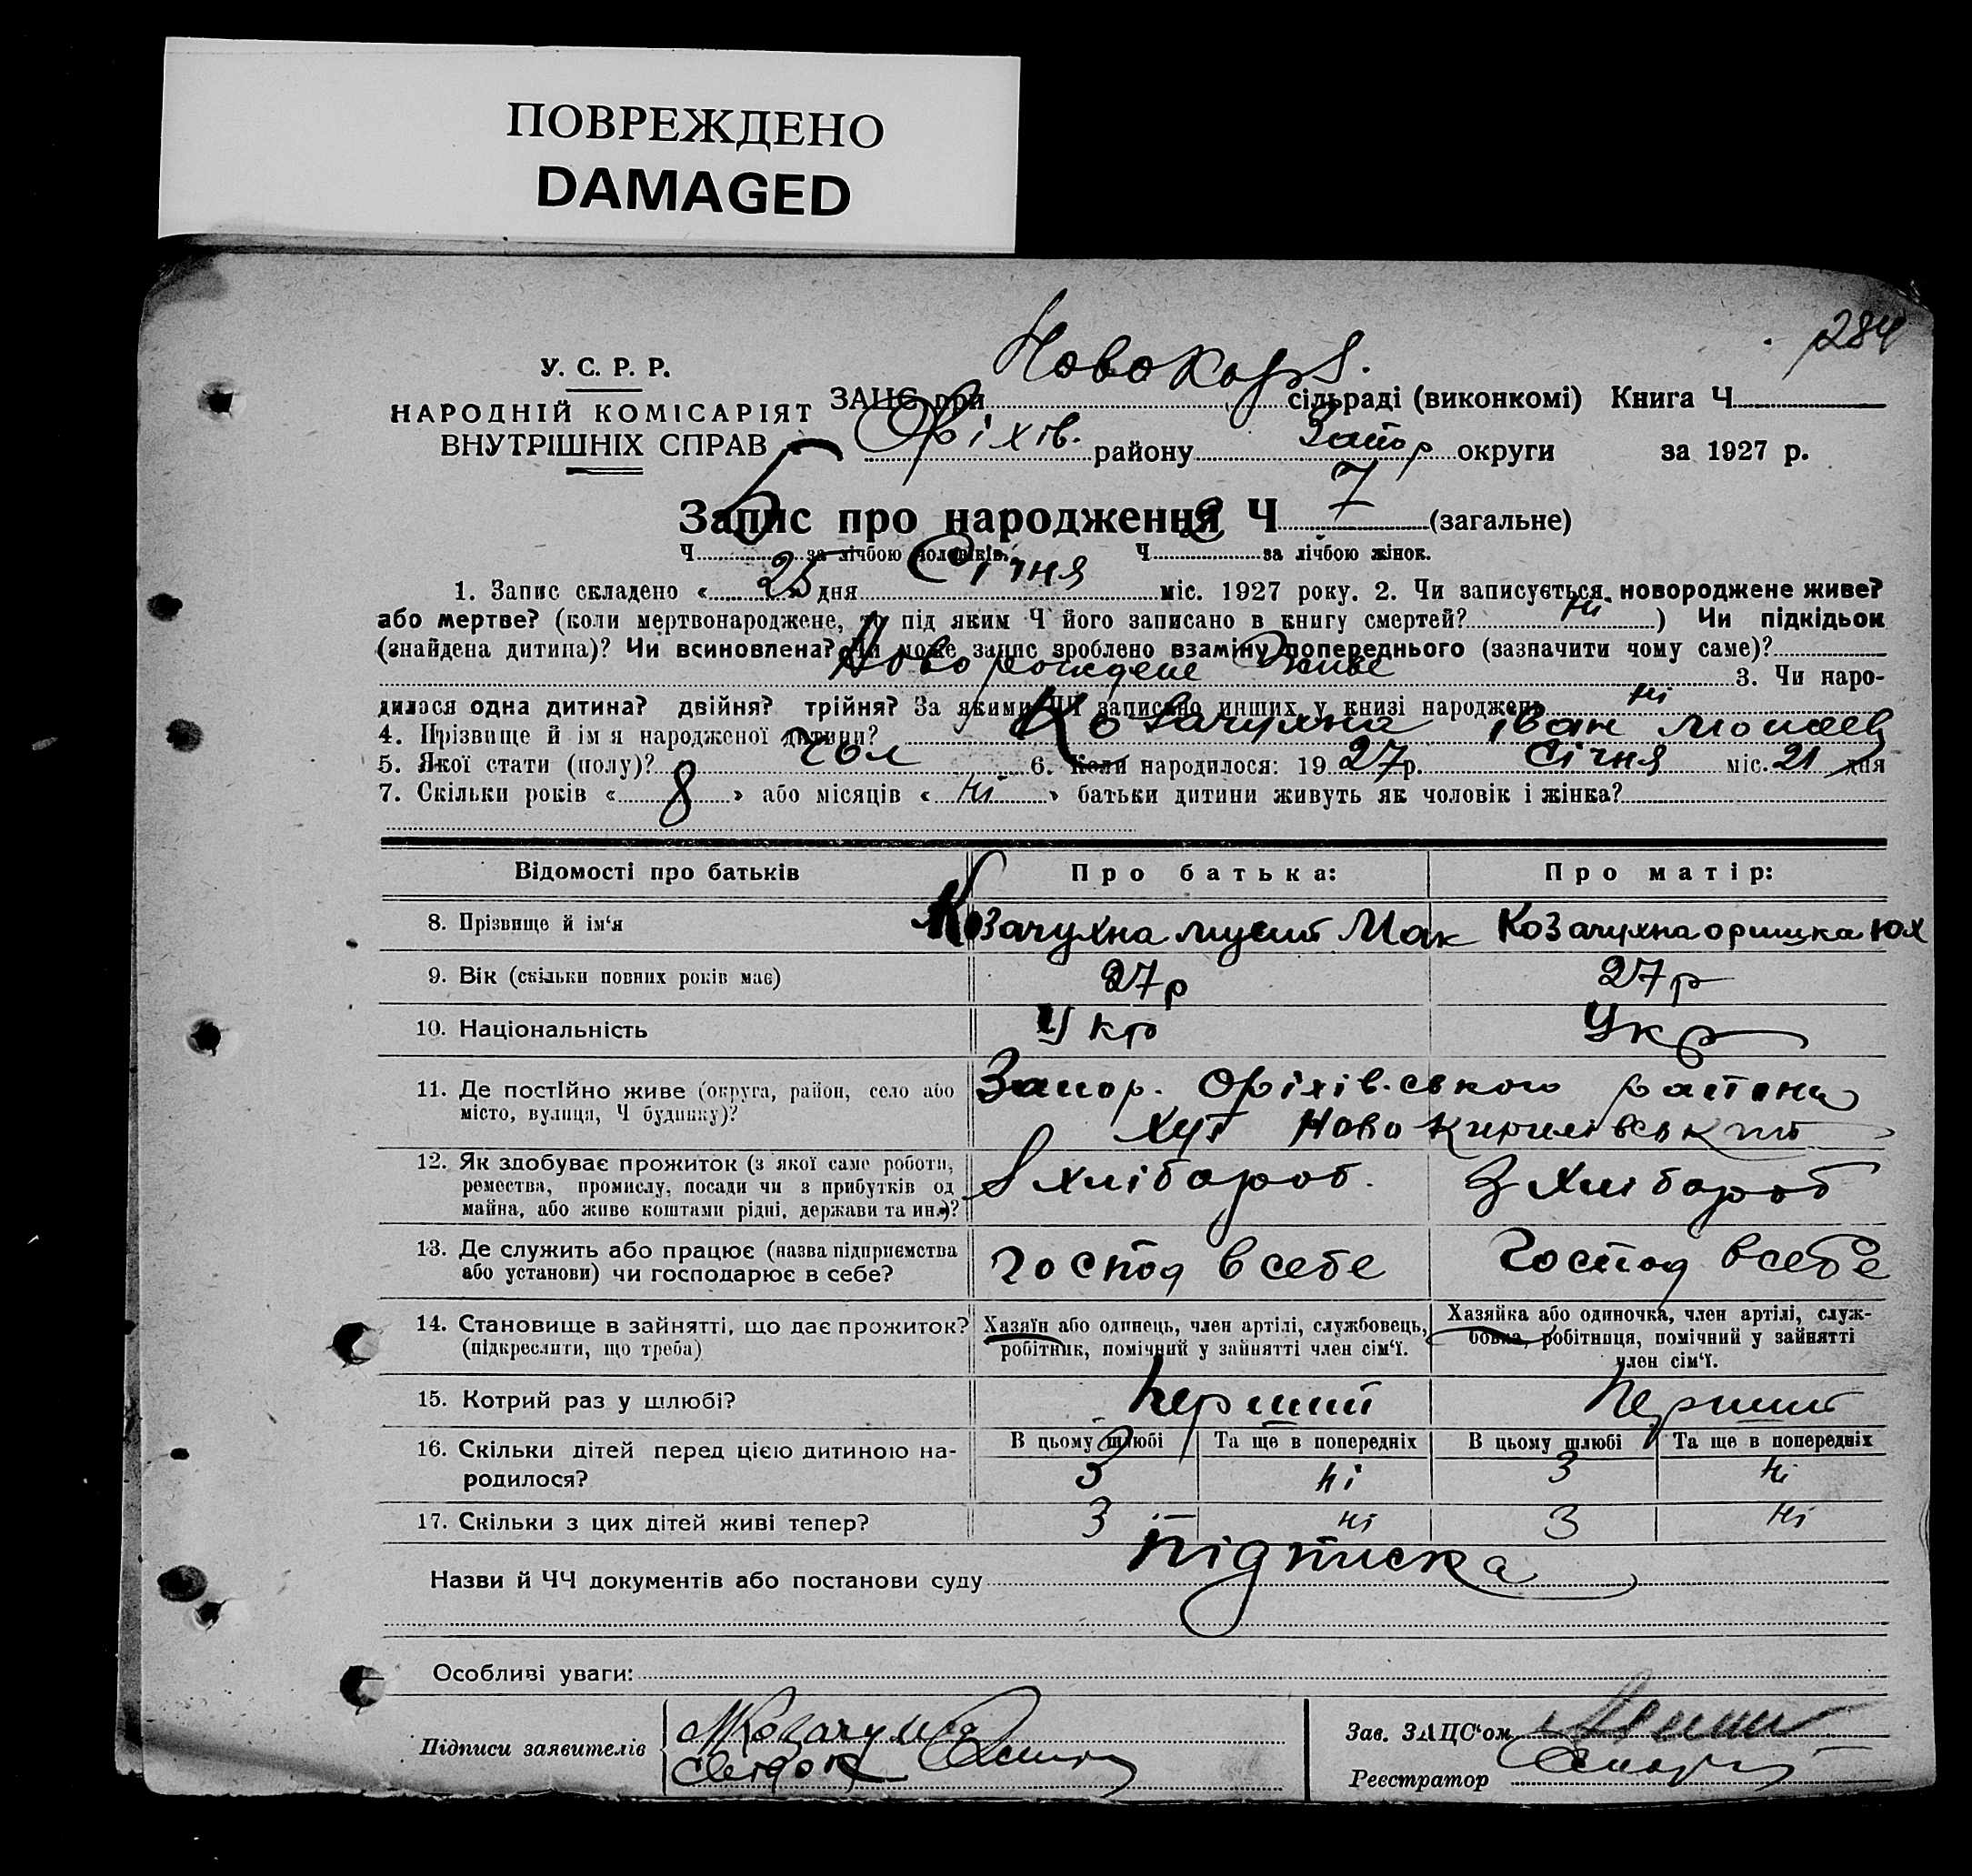 ПОВРЕЖДЕНО
DAMAGED
284
У. С. Р. Р.
НАРОДНІЙ КОМІСАРІЯТ
ВНУТРІШНІХ СПРАВ
ЗАЦС при Новокар. сільраді (виконкомі) Книга Ч
Оріхів. району Запор округи за 1927 р.
Запис про народження Ч 7 (загальне)
Ч за лічбою чоловіків. Ч за лічбою жінок.
1. Запис складено « 25 » дня Січня міс. 1927 року. 2. Чи записується новороджене живе?
або мертве? (коли мертвонароджене, то під яким Ч його записано в книгу смертей? ні ) Чи підкідьок
(знайдена дитина)? Чи всиновлена? Чи може запис зроблено взаміну попереднього (зазначити чому саме)?
Новорождене живе 3. Чи наро-
дилася одна дитина? двійня? трійня? За якими ЧЧ записано инших у книзі народжень ні
4. Прізвище й ім я народженої дитини? Козачухна іван
5. Якої стати (полу)? чол 6. Коли народилося: 19 27 р. Січня міс. 21 дня
7. Скільки років « 8 » або місяців « ні » батьки дитини живуть як чоловік і жінка?
Відомості про батьків Про батька: Про матір:
8. Прізвище й ім‘я Козачухна мусит Мак Козачухна оришка юх
9. Вік (скільки повних років має) 27 р 27 р
10. Національність Укр Укр
11. Де постійно живе (округа, район, село або Запор. Оріхів.ського раіона
місто, вулиця, Ч будинку)? Хут Ново Кирилівський
12. Як здобуває прожиток (з якої саме роботи,
ремества, промислу, посади чи з прибутків од З хлібороб. З хлібороб
майна, або живе коштами рідні, держави та ин.)?
13. Де служить або працює (назва підприємства Господ в себе Господ в себе
або установи) чи господарює в себе?
14. Становище в зайнятті, що дає прожиток? Хазяїн або одинець, член артілі, службовець, Хазяйка або одиночка, член артілі, служ-
(підкреслити, що треба) робітник, помічний у зайнятті член сім‘ї. бовка, робітниця, помічний у зайнятті
член сім‘ї.
15. Котрий раз у шлюбі? Перший Перший
16. Скільки дітей перед цією дитиною на- В цьому шлюбі Та ще в попередніх В цьому шлюбі Та ще в попередніх
родилося? 3 ні 3 ні
17. Скільки з цих дітей живі тепер? 3 ні 3 ні
Назви й ЧЧ документів або постанови суду підписка
Особливі уваги:
Підписи заявителів
Зав. ЗАЦС‘ом
Реєстратор